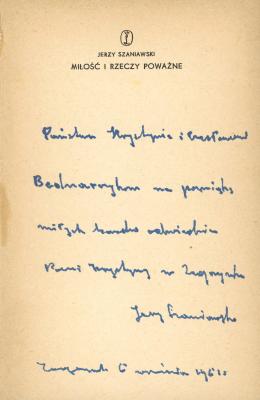 JERZY SZANIAWSKI
MIŁOŚĆ I RZECZY POWAŻNE
Państwu Krystynie i Czesławowi
Bednarczykom na pamiątkę
miłych bardzo odwiedzin
Pani Krystyny w Zegrzynku
Jerzy Szaniawski
Zegrzynek 6 września 1961 r